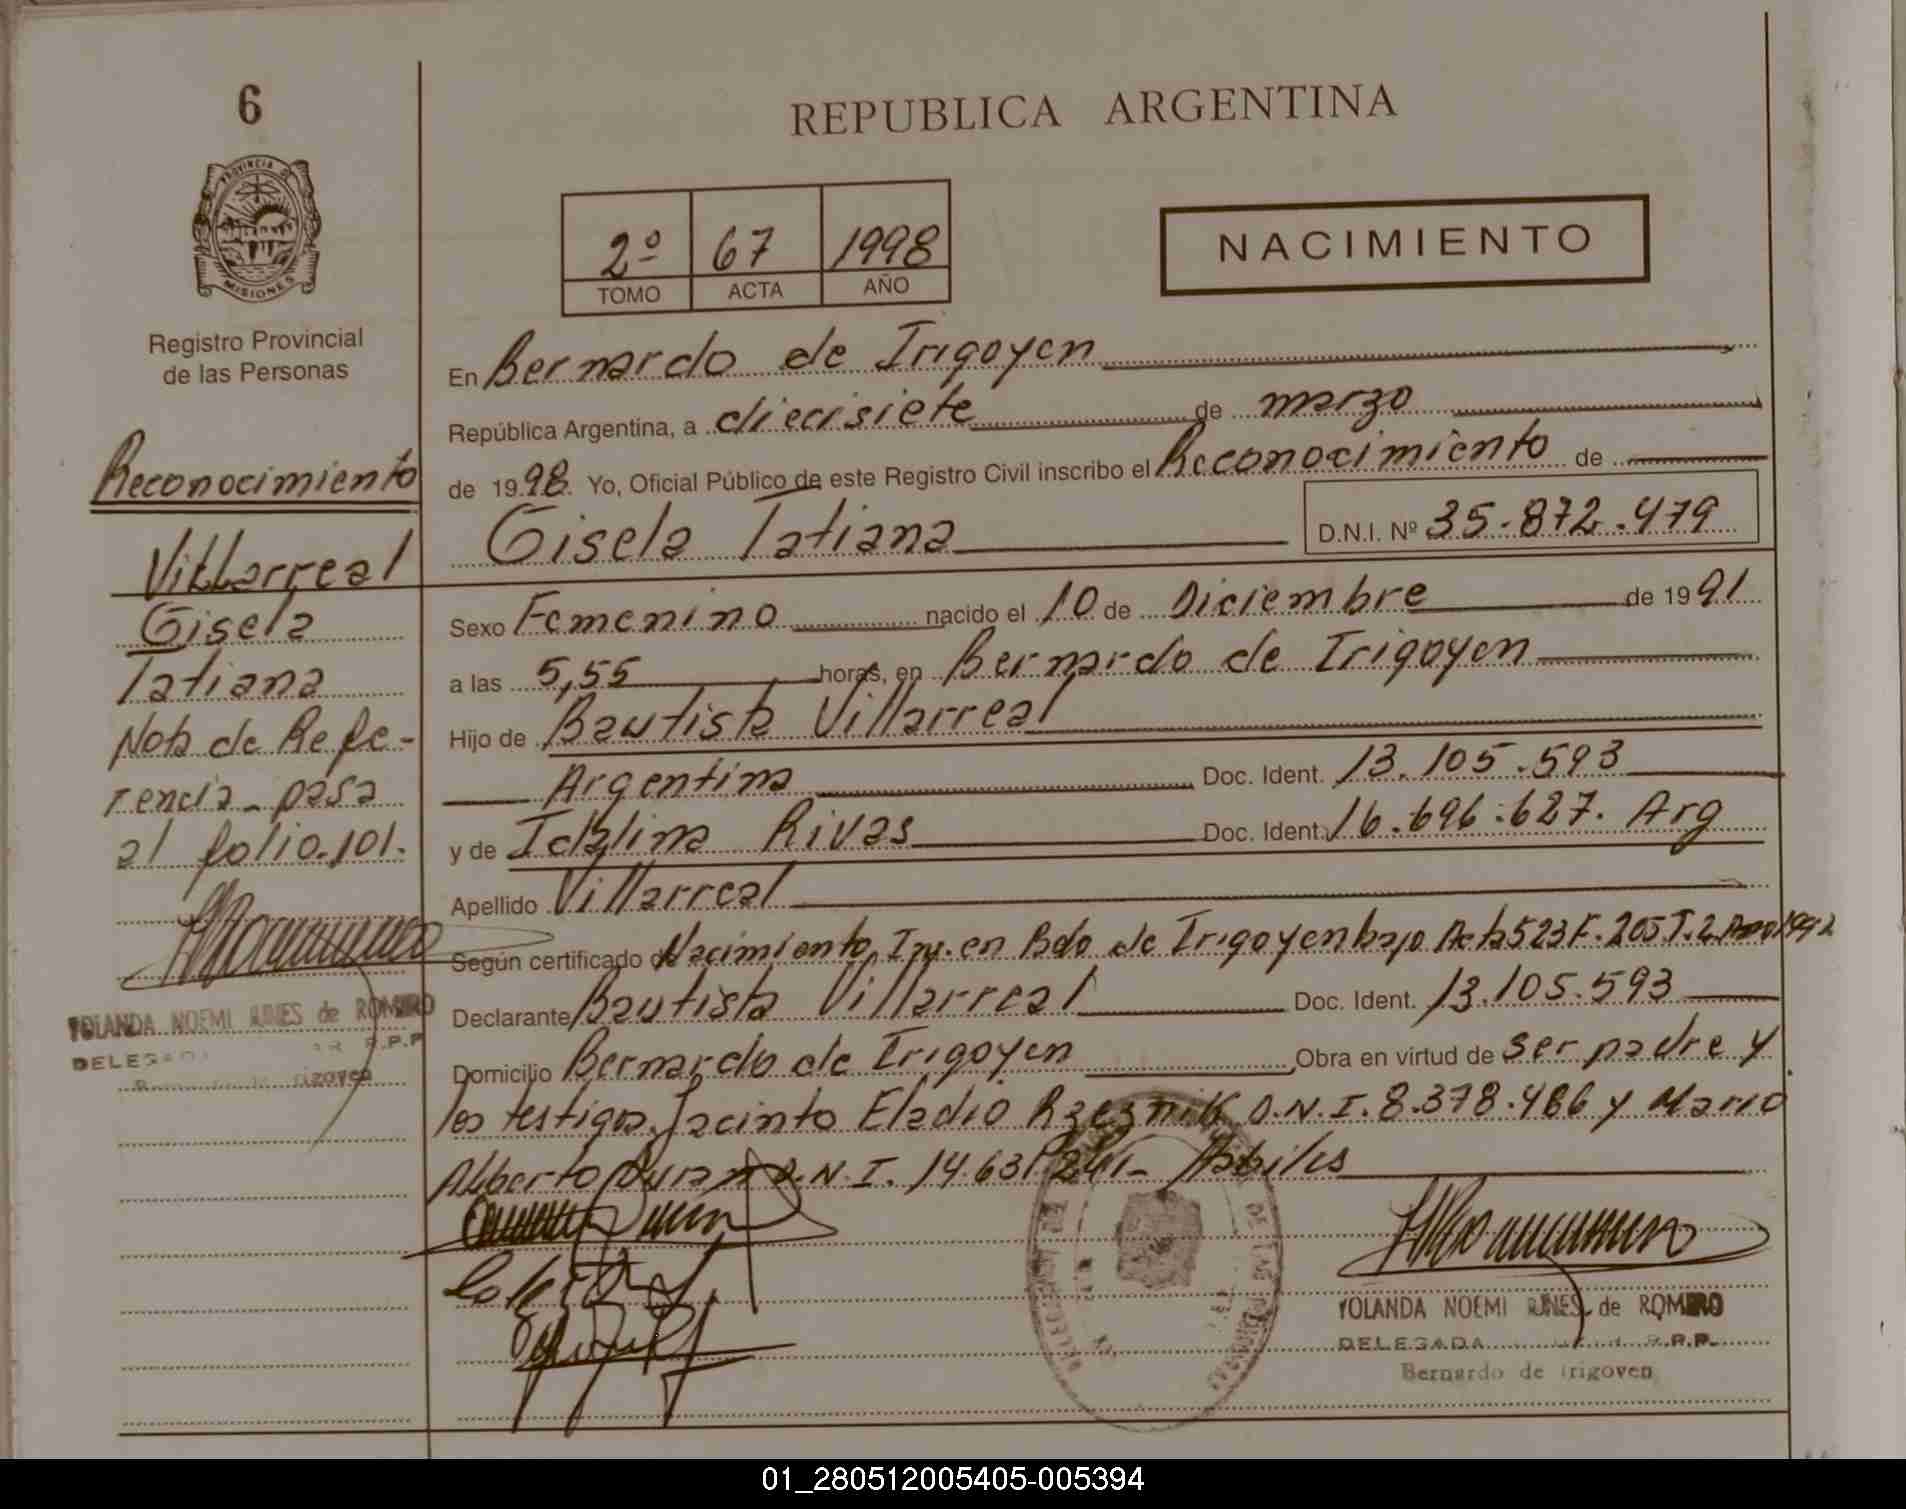 6
PROVINCIA DE
MISIONES
Registro Provincial
de las Personas
Reconocimiento
Villarreal
Gisela
Tatiana
Nota de Refe-
rencia - pasa
al folio. 101.
YOLANDA NOEMI de ROMERO
R.P.P
REPUBLICA ARGENTINA
2º 67 1998
TOMO ACTA AÑO
NACIMIENTO
En Bernardo de Irigoyen
República Argentina, a diecisiete de marzo
de 1998. Yo, Oficial Público de este Registro Civil inscribo el Reconocimiento de
Gisela Tatiana D.N.I. Nº 35.872.479
Sexo Femenino nacido el 10 de Diciembre de 1991
a las 5,55 horas, en Bernardo de Irigoyen
Hijo de Bautista Villarreal
Argentina Doc. Ident. 13.105.593
y de Idalina Rivas Doc. Ident. 16.696.627. Arg
Apellido Villarreal
Según certificado de Nacimiento Ins. en Bdo de Irigoyen bajo Acta 523 F. 205 T. 2 Año 1992
Declarante Bautista Villarreal Doc. Ident. 13.105.593
Domicilio Bernardo de Irigoyen Obra en virtud de ser padre y
los testigos Jacinto Eladio Rzeznik D.N.I. 8.378.486 y Mario
Alberto Duran D.N.I. 14.631.241- Habiles
YOLANDA NOEMI de ROMERO
DELEGADA R.P.P.
Bernardo de Irigoyen
01_280512005405-005394